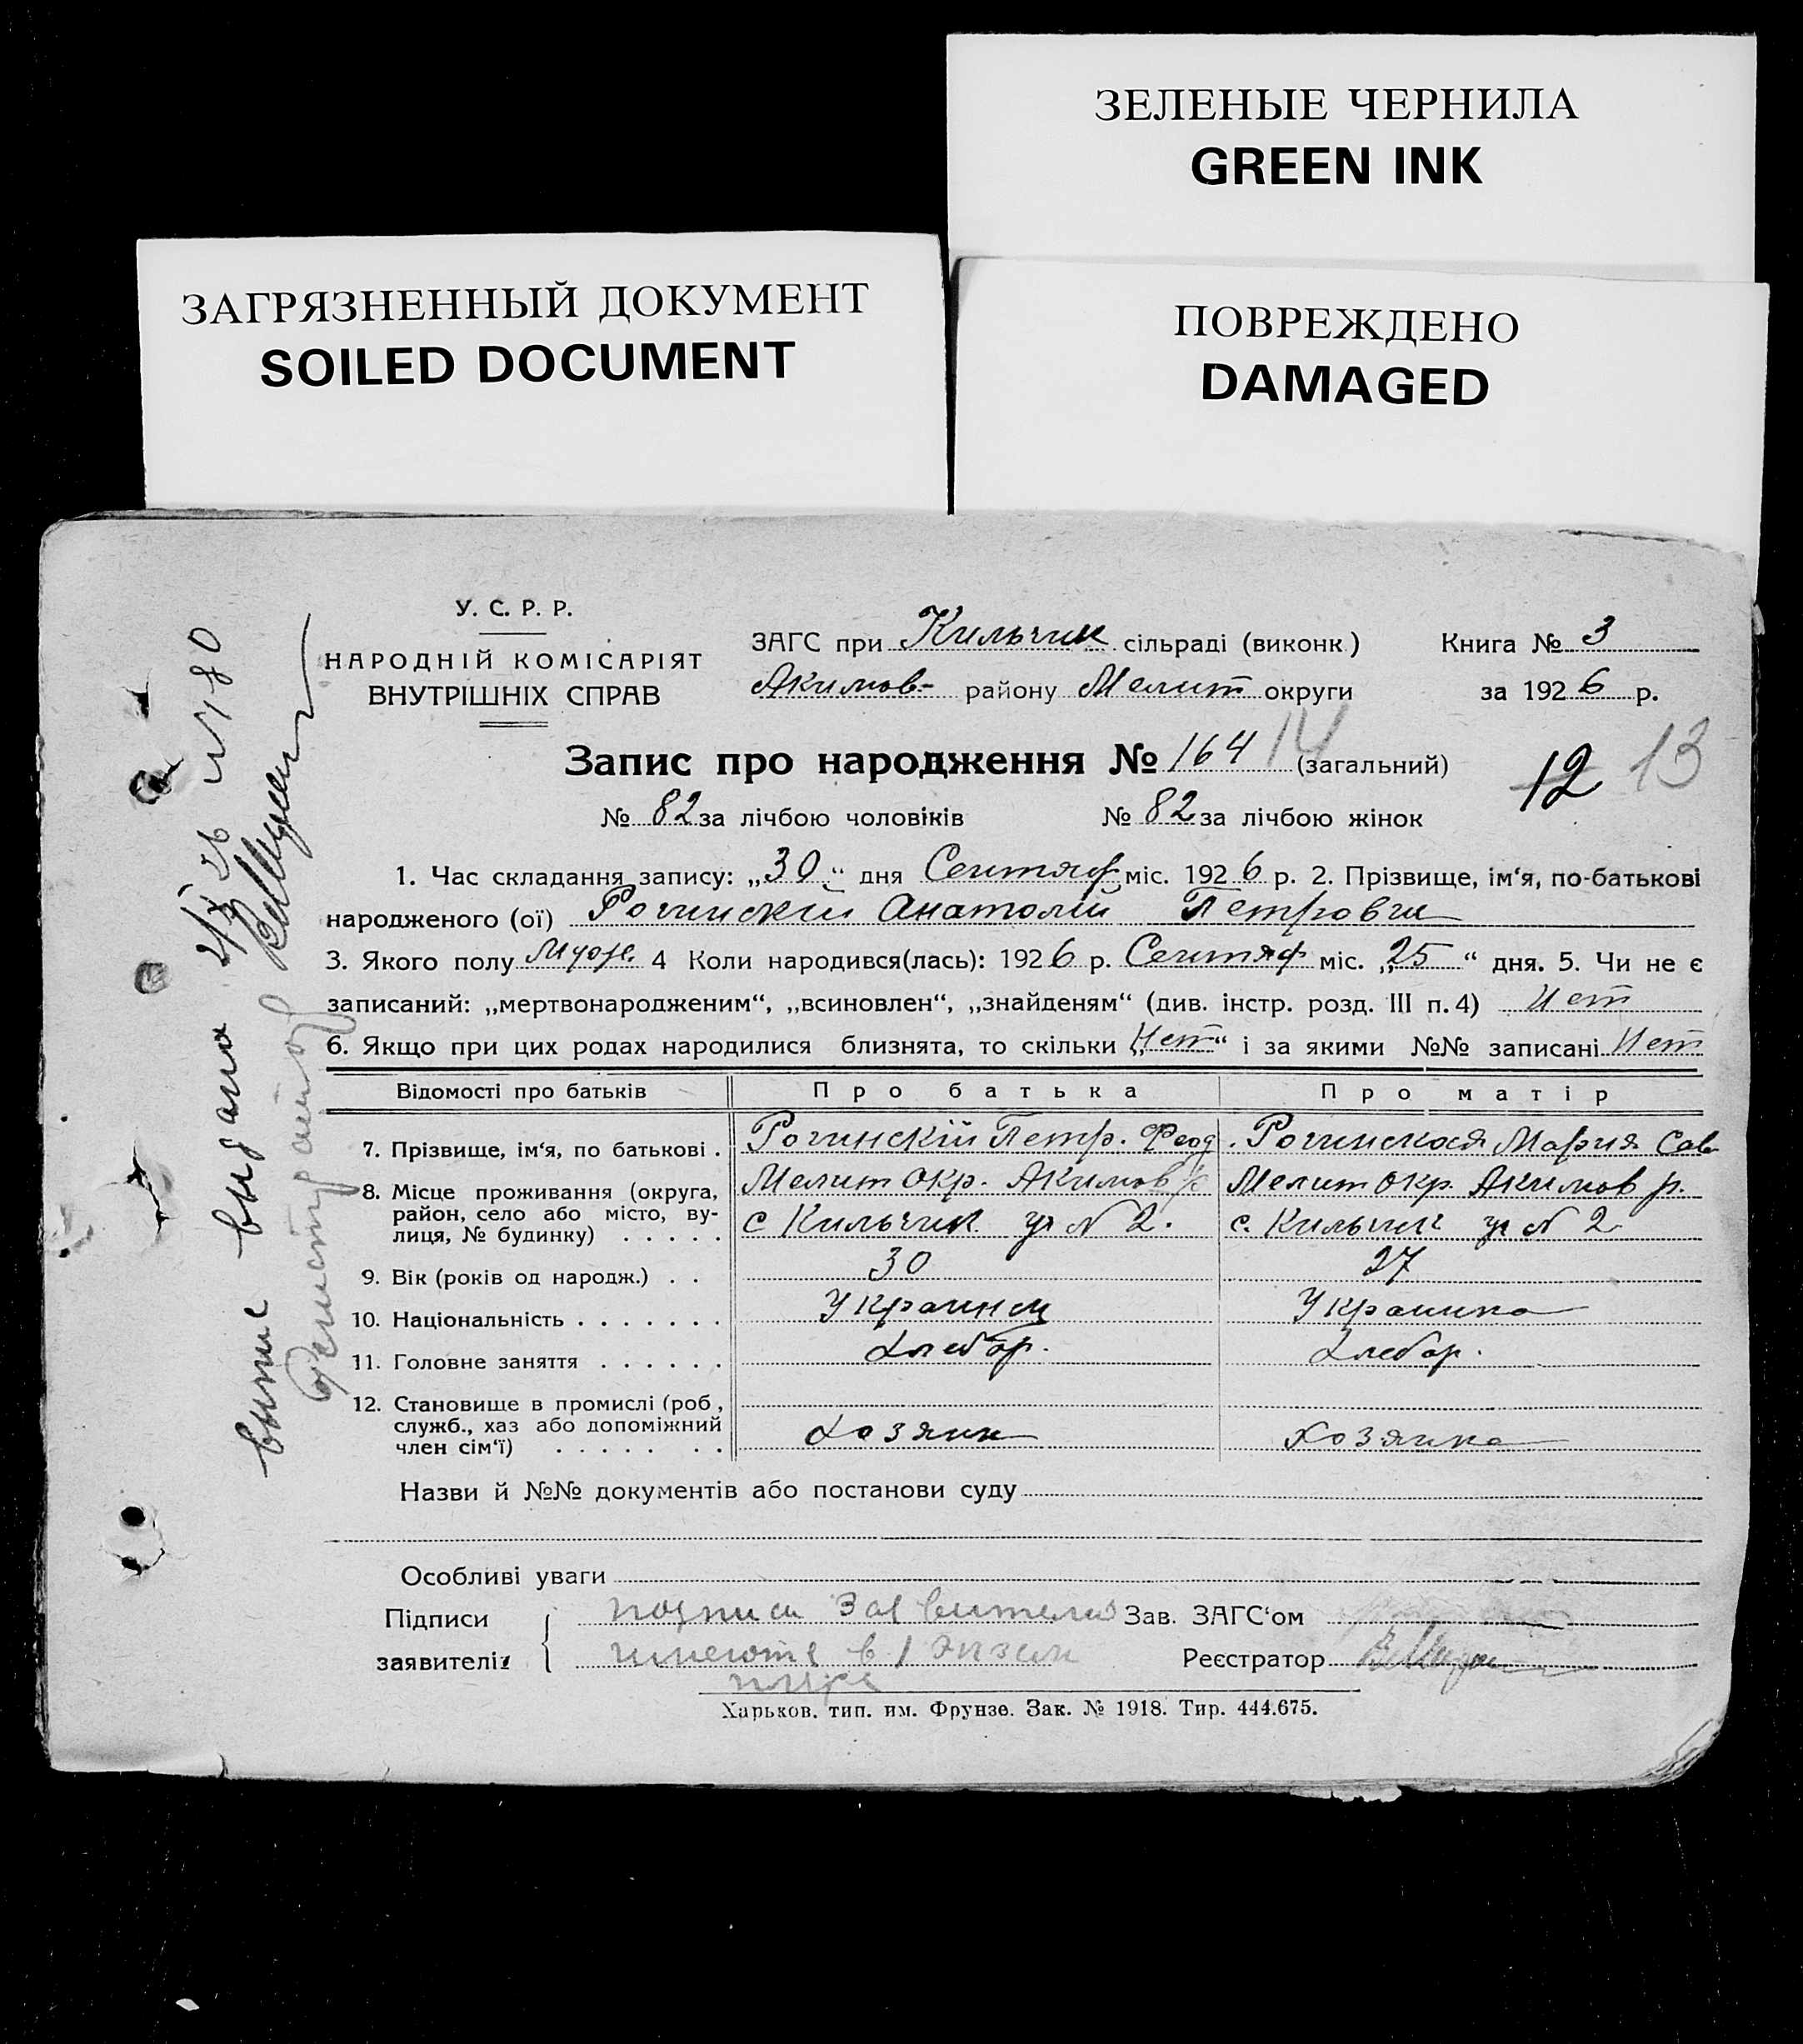 ЗЕЛЕНЫЕ ЧЕРНИЛА
GREEN INK
ЗАГРЯЗНЕННЫЙ ДОКУМЕНТ
SOILED DOCUMENT
ПОВРЕЖДЕНО
DAMAGED
У. С. Р. Р.
НАРОДНІЙ КОМІСАРІЯТ
ВНУТРІШНІХ СПРАВ
ЗАГС при Кильчик сільраді (виконк.)
Книга № 3
Акимов- району Мелит округи
за 1926 р.
Запис про народження № 164 14 (загальний)
12 13
№ 82 за лічбою чоловіків № 82 за лічбою жінок
1. Час складання запису: „30“ дня Сентяб міс. 1926 р. 2. Прізвище, ім‘я, по-батькові
народженого (ої) Рогинскій Анатолій Петрович
3. Якого полу Муж. 4 Коли народився(лась): 1926 р. Сентяб міс. „25“ дня. 5. Чи не є
записаний: „мертвонародженим“, „всиновлен“, „знайденям“ (див. інстр. розд. III п. 4) Нет
6. Якщо при цих родах народилися близнята, то скільки „Нет“ і за якими №№ записані Нет
Відомості про батьків Про батька Про матір
7. Прізвище, ім‘я, по батькові . Рогинскій Петр. Феод. Рогинская Мария Сав
8. Місце проживання (округа, район, село або місто, вулиця, № будинку) Мелит окр. Акимов р Мелит окр. Акимов р.
с Кильчик ул N 2. с. Кильчик ул N 2
9. Вік (років од народж.) . . 30 27
10. Національність . . . . . . . Украинец Украинка
11. Головне заняття . . . . . . Хлебор. Хлебор.
12. Становище в промислі (роб., служб., хаз або допоміжний член сім‘ї) Хозяин Хозяйка
Назви й №№ документів або постанови суду
Особливі уваги
Підписи заявителів { подписи заявителя
имеются в 1 экзем
пляре
Зав. ЗАГС‘ом
Реєстратор
Харьков. тип. им. Фрунзе. Зак. № 1918. Тир. 444.675.
выпис выдано 26 N 180
Регистратор